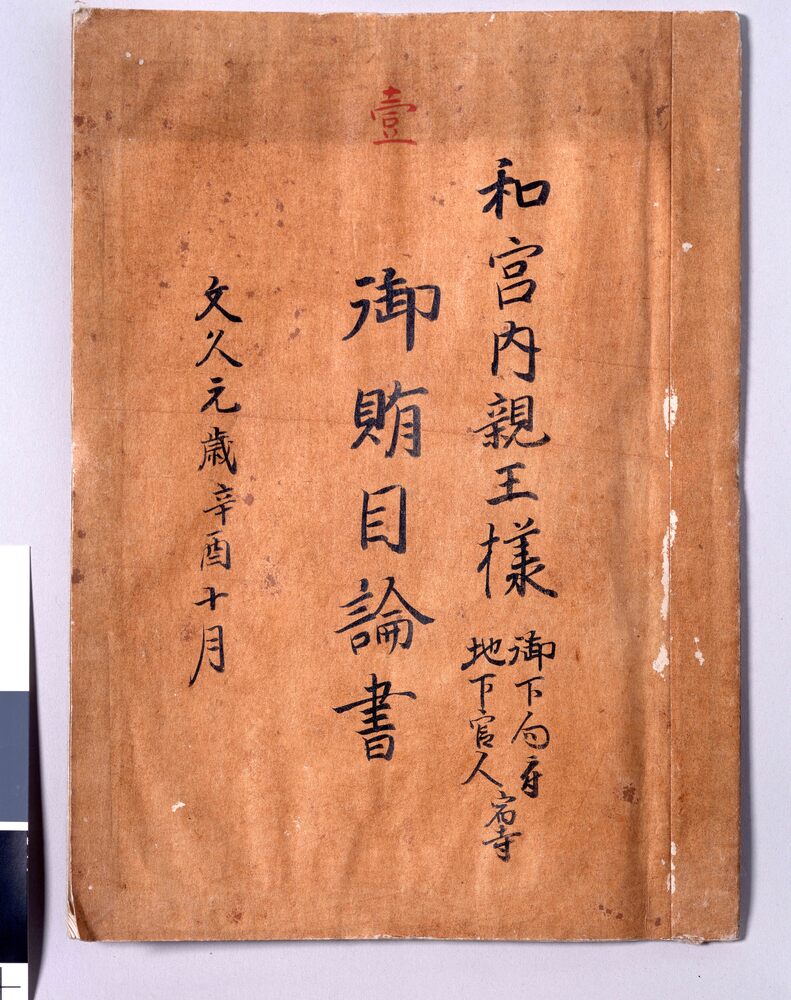 壹
和宮内親王様
御下向
地下官人
宿寺
御賄目論書
文久元歳辛酉十月